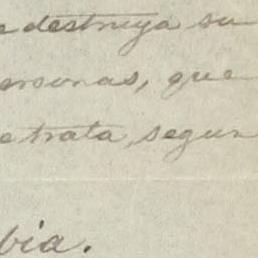 e destruya su
ersonas, que
e trata, segun
bia.